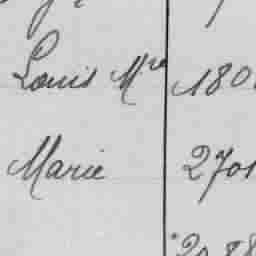 Louis Mre 180
Marie 2701